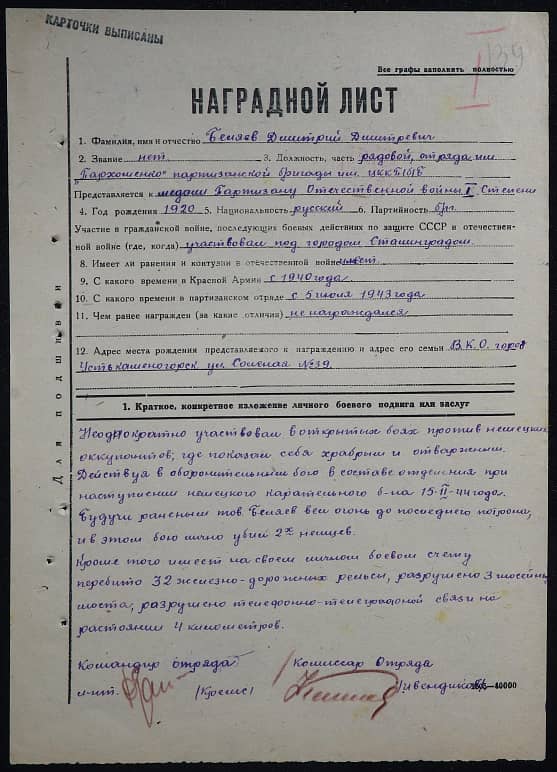 КАРТОЧКИ ВЫПИСАНЫ
139
Все графы заполнять полностью
I
НАГРАДНОЙ ЛИСТ
1. Фамилия, имя и отчество Беляев Дмитрий Дмитревич
2. Звание нет 3. Должность, часть рядовой, отряда им.
"Пархоменко" партизанской бригады им. ЦККП(б)Б
Представляется к медали Партизану Отечественной войны I Степени
4. Год рождения 1920 5. Национальность русский 6. Партийность б/п.
Участие в гражданской войне, последующих боевых действиях по защите СССР в отечествен-
ной войне (где, когда) участвовал под городом Сталинградом.
8. Имеет ли ранения и контузии в отечественной войне имеет
9. С какого времени в Красной Армии с 1940 года.
10. С какого времени в партизанском отряде с 5 июня 1943 года
11. Чем ранее награжден (за какие отличия) не награждался
12. Адрес места рождения представляемого к награждению и адрес его семьи В.К.О. город
Усть-каменогорск ул. №39.
Для подшивки
1. Краткое, конкретное изложение личного боевого подвига или заслуг
Неоднократно участвовал в открытых боях против немецких
оккупантов, где показал себя храбрым и отважным.
Действуя в оборонительном бою в составе отделения при
наступлении немецкого карательного б-на 15-II-44 года.
Будучи раненым тов Беляев вел огонь до последнего патрона,
и в этом бою лично убил 2х немцев.
Кроме того имеет на своем личном боевом счету
перебито 32 железно-дорожных рельсы, разрушено 3 шоссейных
моста, разрушено телефонно-телеграфной связи на
растоянии 4 километров.
Командир отряда Комиссар Отряда
л-нт.
40000